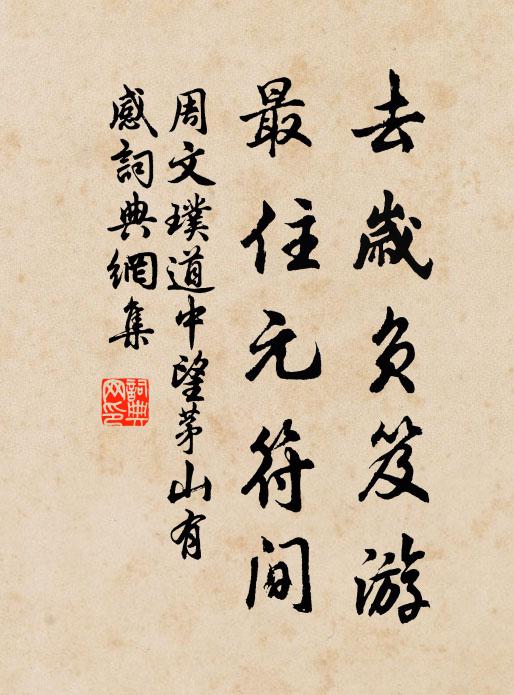 去歲負笈游
最住元符間
周文璞道中望茅山有
感詞典網集
詞典
网印